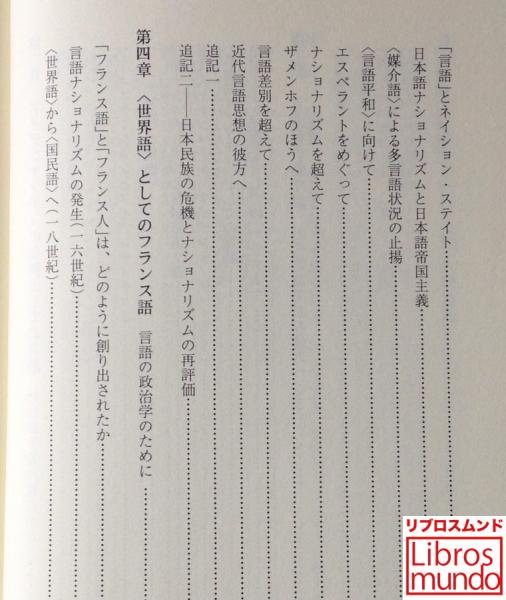 「言語」とネイション・ステイト
日本語ナショナリズムと日本語帝国主義
〈媒介語〉による多言語状況の止揚
〈言語平和〉に向けて
エスペラントをめぐって
ナショナリズムを超えて
ザメンホフのほうへ
言語差別を超えて
近代言語思想の彼方へ
追記一
追記二——日本民族の危機とナショナリズムの再評価
第四章 〈世界語〉としてのフランス語 言語の政治学のために
「フランス語」と「フランス人」は、どのように創り出されたか
言語ナショナリズムの発生(一六世紀)
〈世界語〉から〈国民語〉へ(一八世紀)
リブロスムンド
Libros
mundo